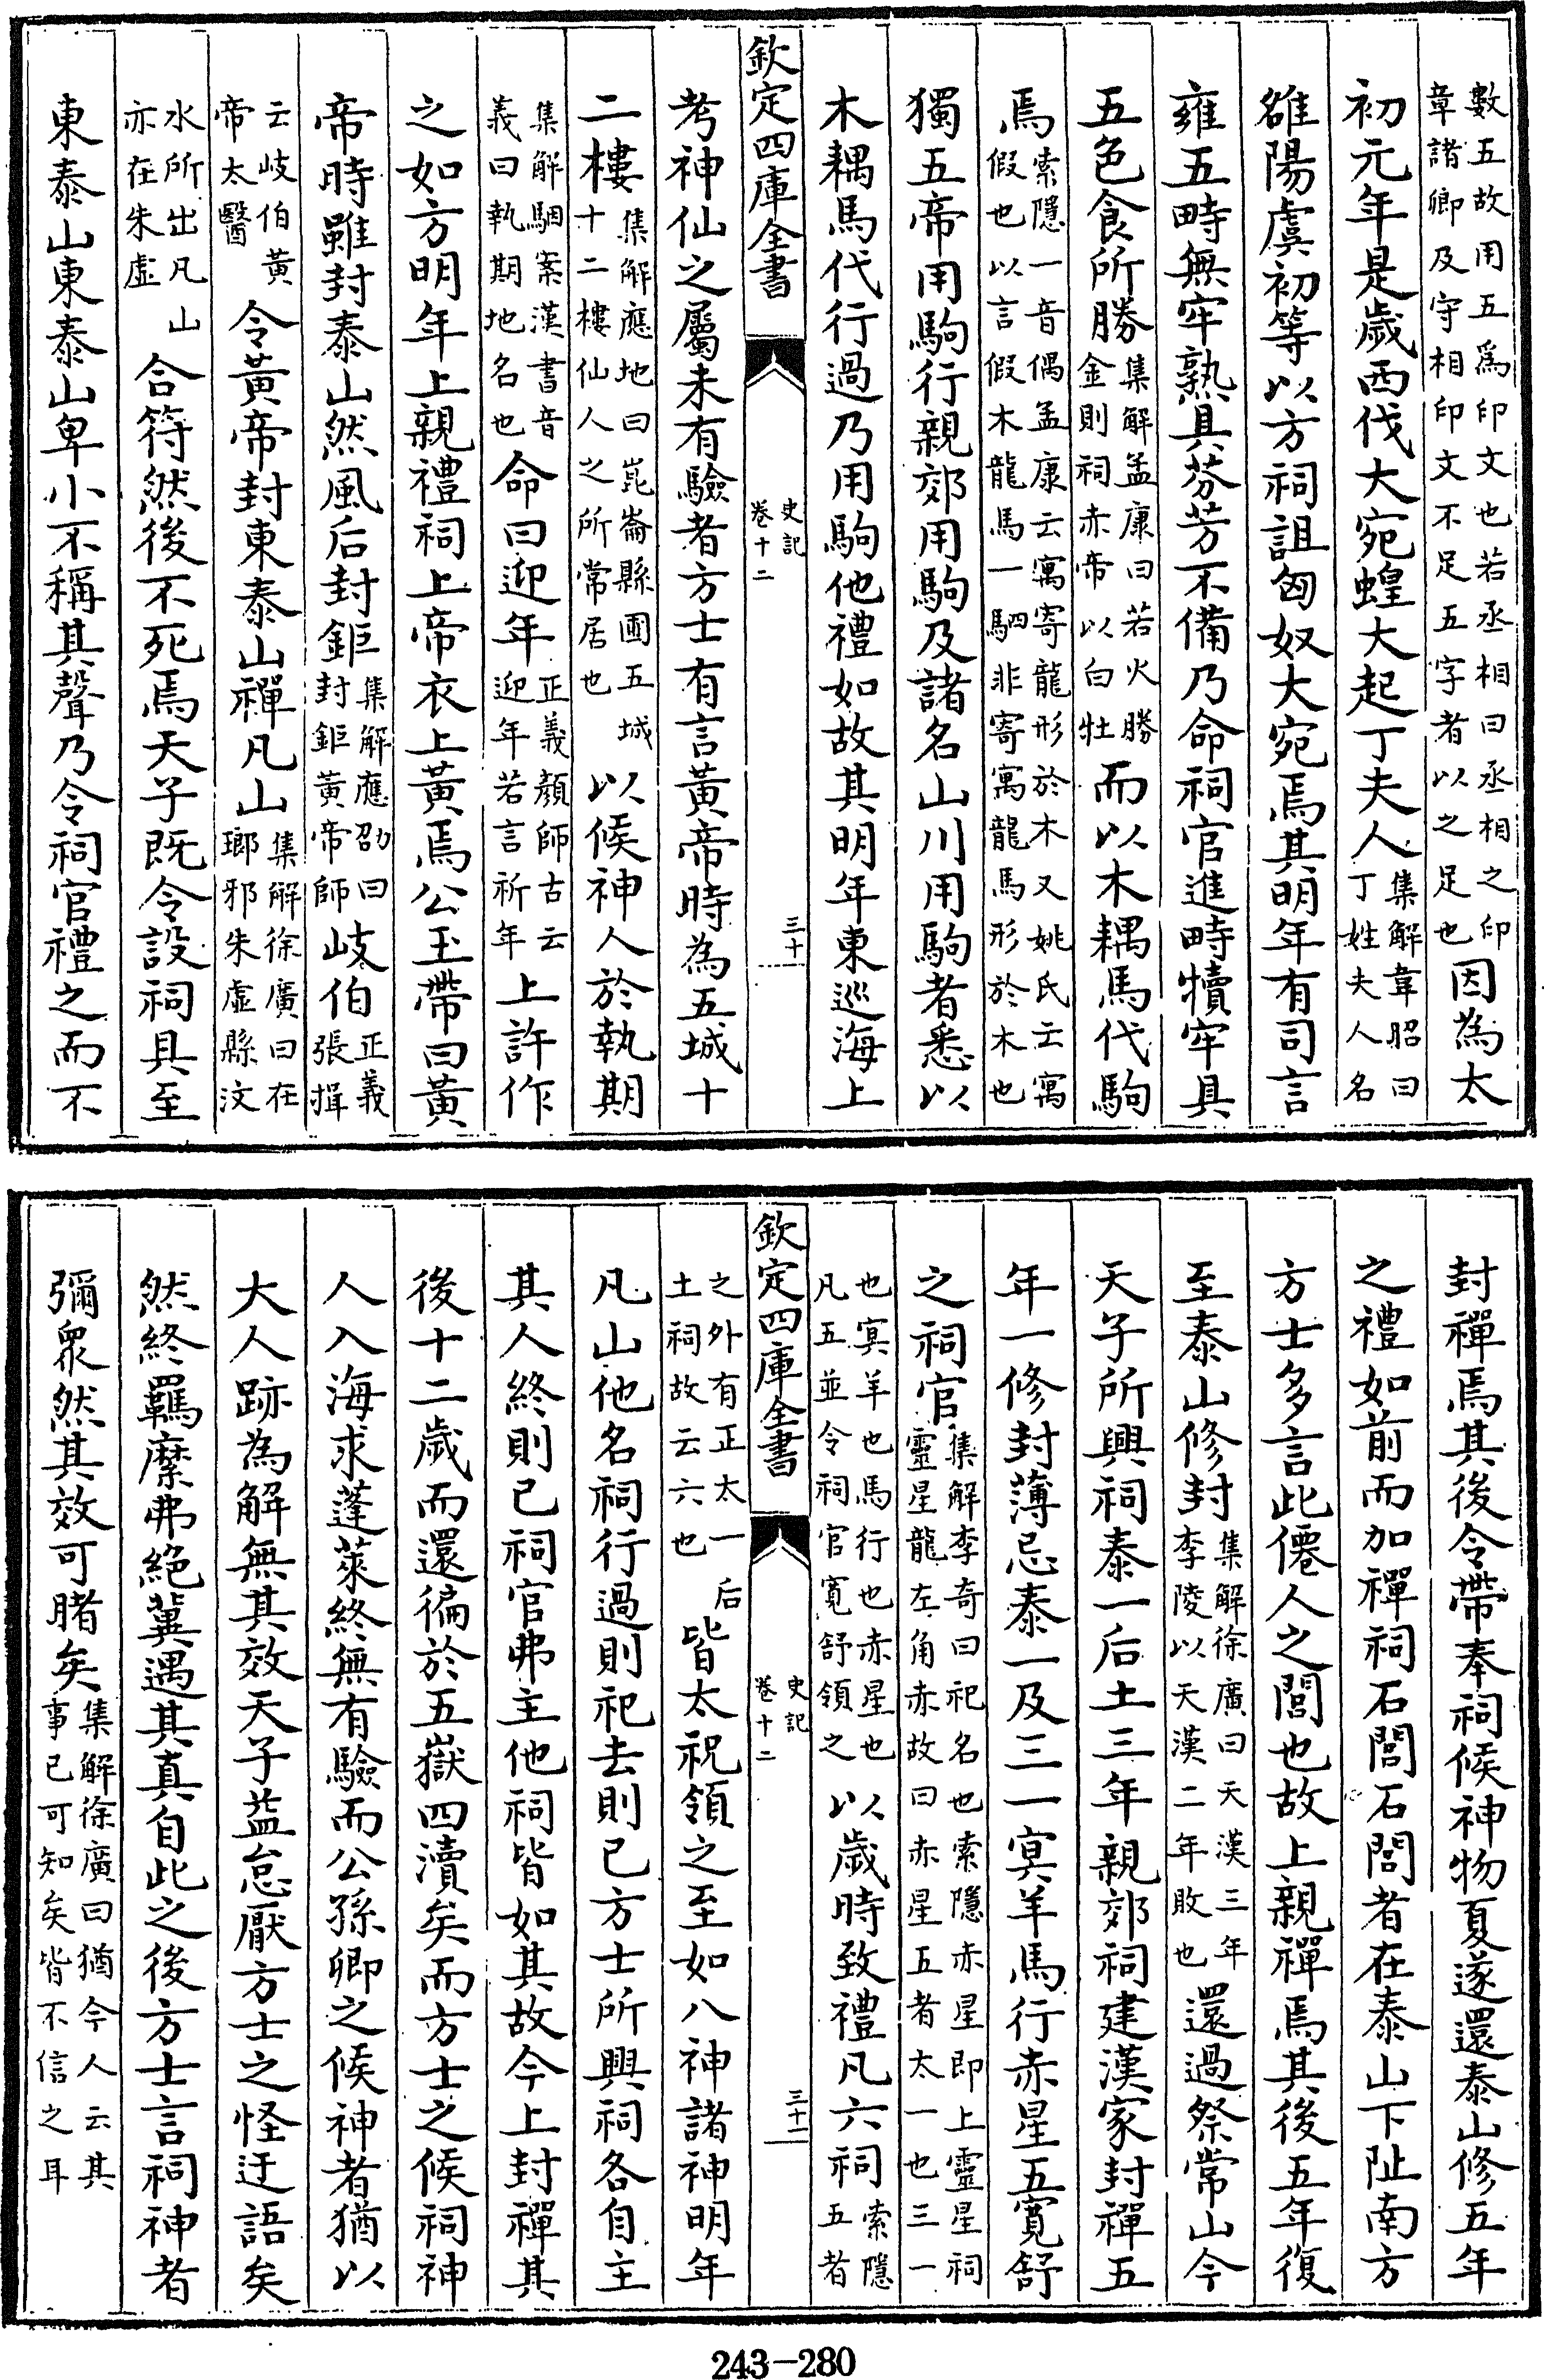 數五故用五為印文也若丞相曰丞相之印
章諸卿及守相印文不足五字者以之足也
因為太
初元年是歲西伐大宛蝗大起丁夫人
集解韋昭曰
丁姓夫人名
雒陽虞初等以方祠詛匈奴大宛焉其明年有司言
雍五畤無牢熟具芬芳不備乃命祠官進畤犢牢具
五色食所勝
集解孟康曰若火勝
金則祠赤帝以白牡
而以木耦馬代駒
焉
索隱一音偶孟康云寓寄龍形於木又姚氏云寓
假也以言假木龍馬一駟非寄寓龍馬形於木也
獨五帝用駒行親郊用駒及諸名山川用駒者悉以
木耦馬代行過乃用駒他禮如故其明年東巡海上
欽定四庫全書
史記
卷十二
三十
考神仙之屬未有驗者方士有言黃帝時為五城十
二樓
集解應地曰崑崙縣圃五城
十二樓仙人之所常居也
以候神人於執期
集解駰案漢書音
義曰執期地名也
命曰迎年
正義顏師古云
迎年若言祈年
上許作
之如方明年上親禮祠上帝衣上黃焉公玉帶曰黃
帝時雖封泰山然風后封鉅
集解應劭曰
封鉅黃帝師
岐伯
正義
張揖
云岐伯黃
帝太醫
令黃帝封東泰山禪凡山
集解徐廣曰在
瑯邪朱虛縣汶
水所出凡山
亦在朱虛
合符然後不死焉天子既令設祠具至
東泰山東泰山卑小不稱其聲乃令祠官禮之而不
封禪焉其後令帶奉祠候神物夏遂還泰山修五年
之禮如前而加禪祠石閭石閭者在泰山下阯南方
方士多言此僊人之閭也故上親禪焉其後五年復
至泰山修封
集解徐廣曰天漢三年
李陵以天漢二年敗也
還過祭常山今
天子所興祠泰一后土三年親郊祠建漢家封禪五
年一修封薄忌泰一及三一冥羊馬行赤星五寬舒
之祠官
集解李奇曰祀名也索隱赤星即上靈星祠
靈星龍左角赤故曰赤星五者太一也三一
也冥羊也馬行也赤星也
凡五並令祠官寬舒領之
以歲時致禮凡六祠
索隱
五者
之外有正太一后
土祠故云六也
皆太祝領之至如八神諸神明年
凡山他名祠行過則祀去則已方士所興祠各自主
其人終則已祠官弗主他祠皆如其故今上封禪其
後十二歲而還徧於五嶽四瀆矣而方士之候祠神
人入海求蓬萊終無有驗而公孫卿之候神者猶以
大人跡為解無其效天子益怠厭方士之怪迂語矣
然終羈縻弗絕冀遇其真自此之後方士言祠神者
彌眾然其效可睹矣
集解徐廣曰猶今人云其
事已可知矣皆不信之耳
欽定四庫全書
史記
卷十二
三十一
243-280